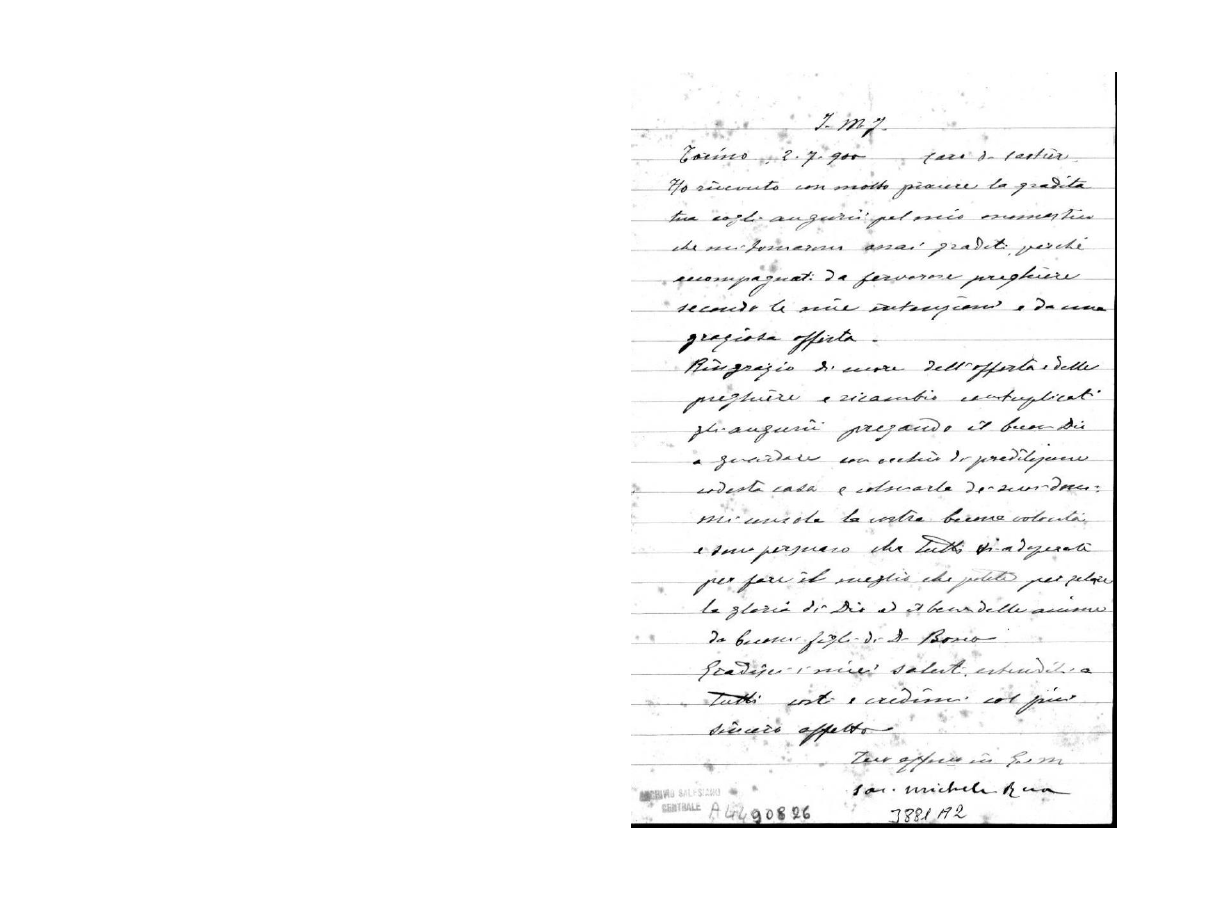 J. M. J.
Torino, 2. 7. 900 caro D. Cartier
Ho ricevuto con molto piacere la gradita
tua cogli augurii pel mio onomastico
che mi tornarono assai graditi perchè
accompagnati da fervorose preghiere
secondo le mie intenzioni e da una
graziosa offerta.
Ringrazio di cuore dell'offerta e delle
preghiere e ricambio centuplicati
gli augurii pregando il buon Dio
a guardare con occhio di predilezione
codesta casa e colmarla de' suoi doni.
Mi consola la vostra buona volontà,
e sono persuaso che tutti vi adoperate
per fare il meglio che potete per zelare
la gloria di Dio ed il bene delle anime
da buoni figli di D. Bosco
Gradisci i miei saluti, estendili a
tutti costì e credimi col più
sincero affetto
Tuo aff.mo in G. e M.
Sac. Michele Rua
ARCHIVIO SALESIANO
CENTRALE A4490826 3881 A2